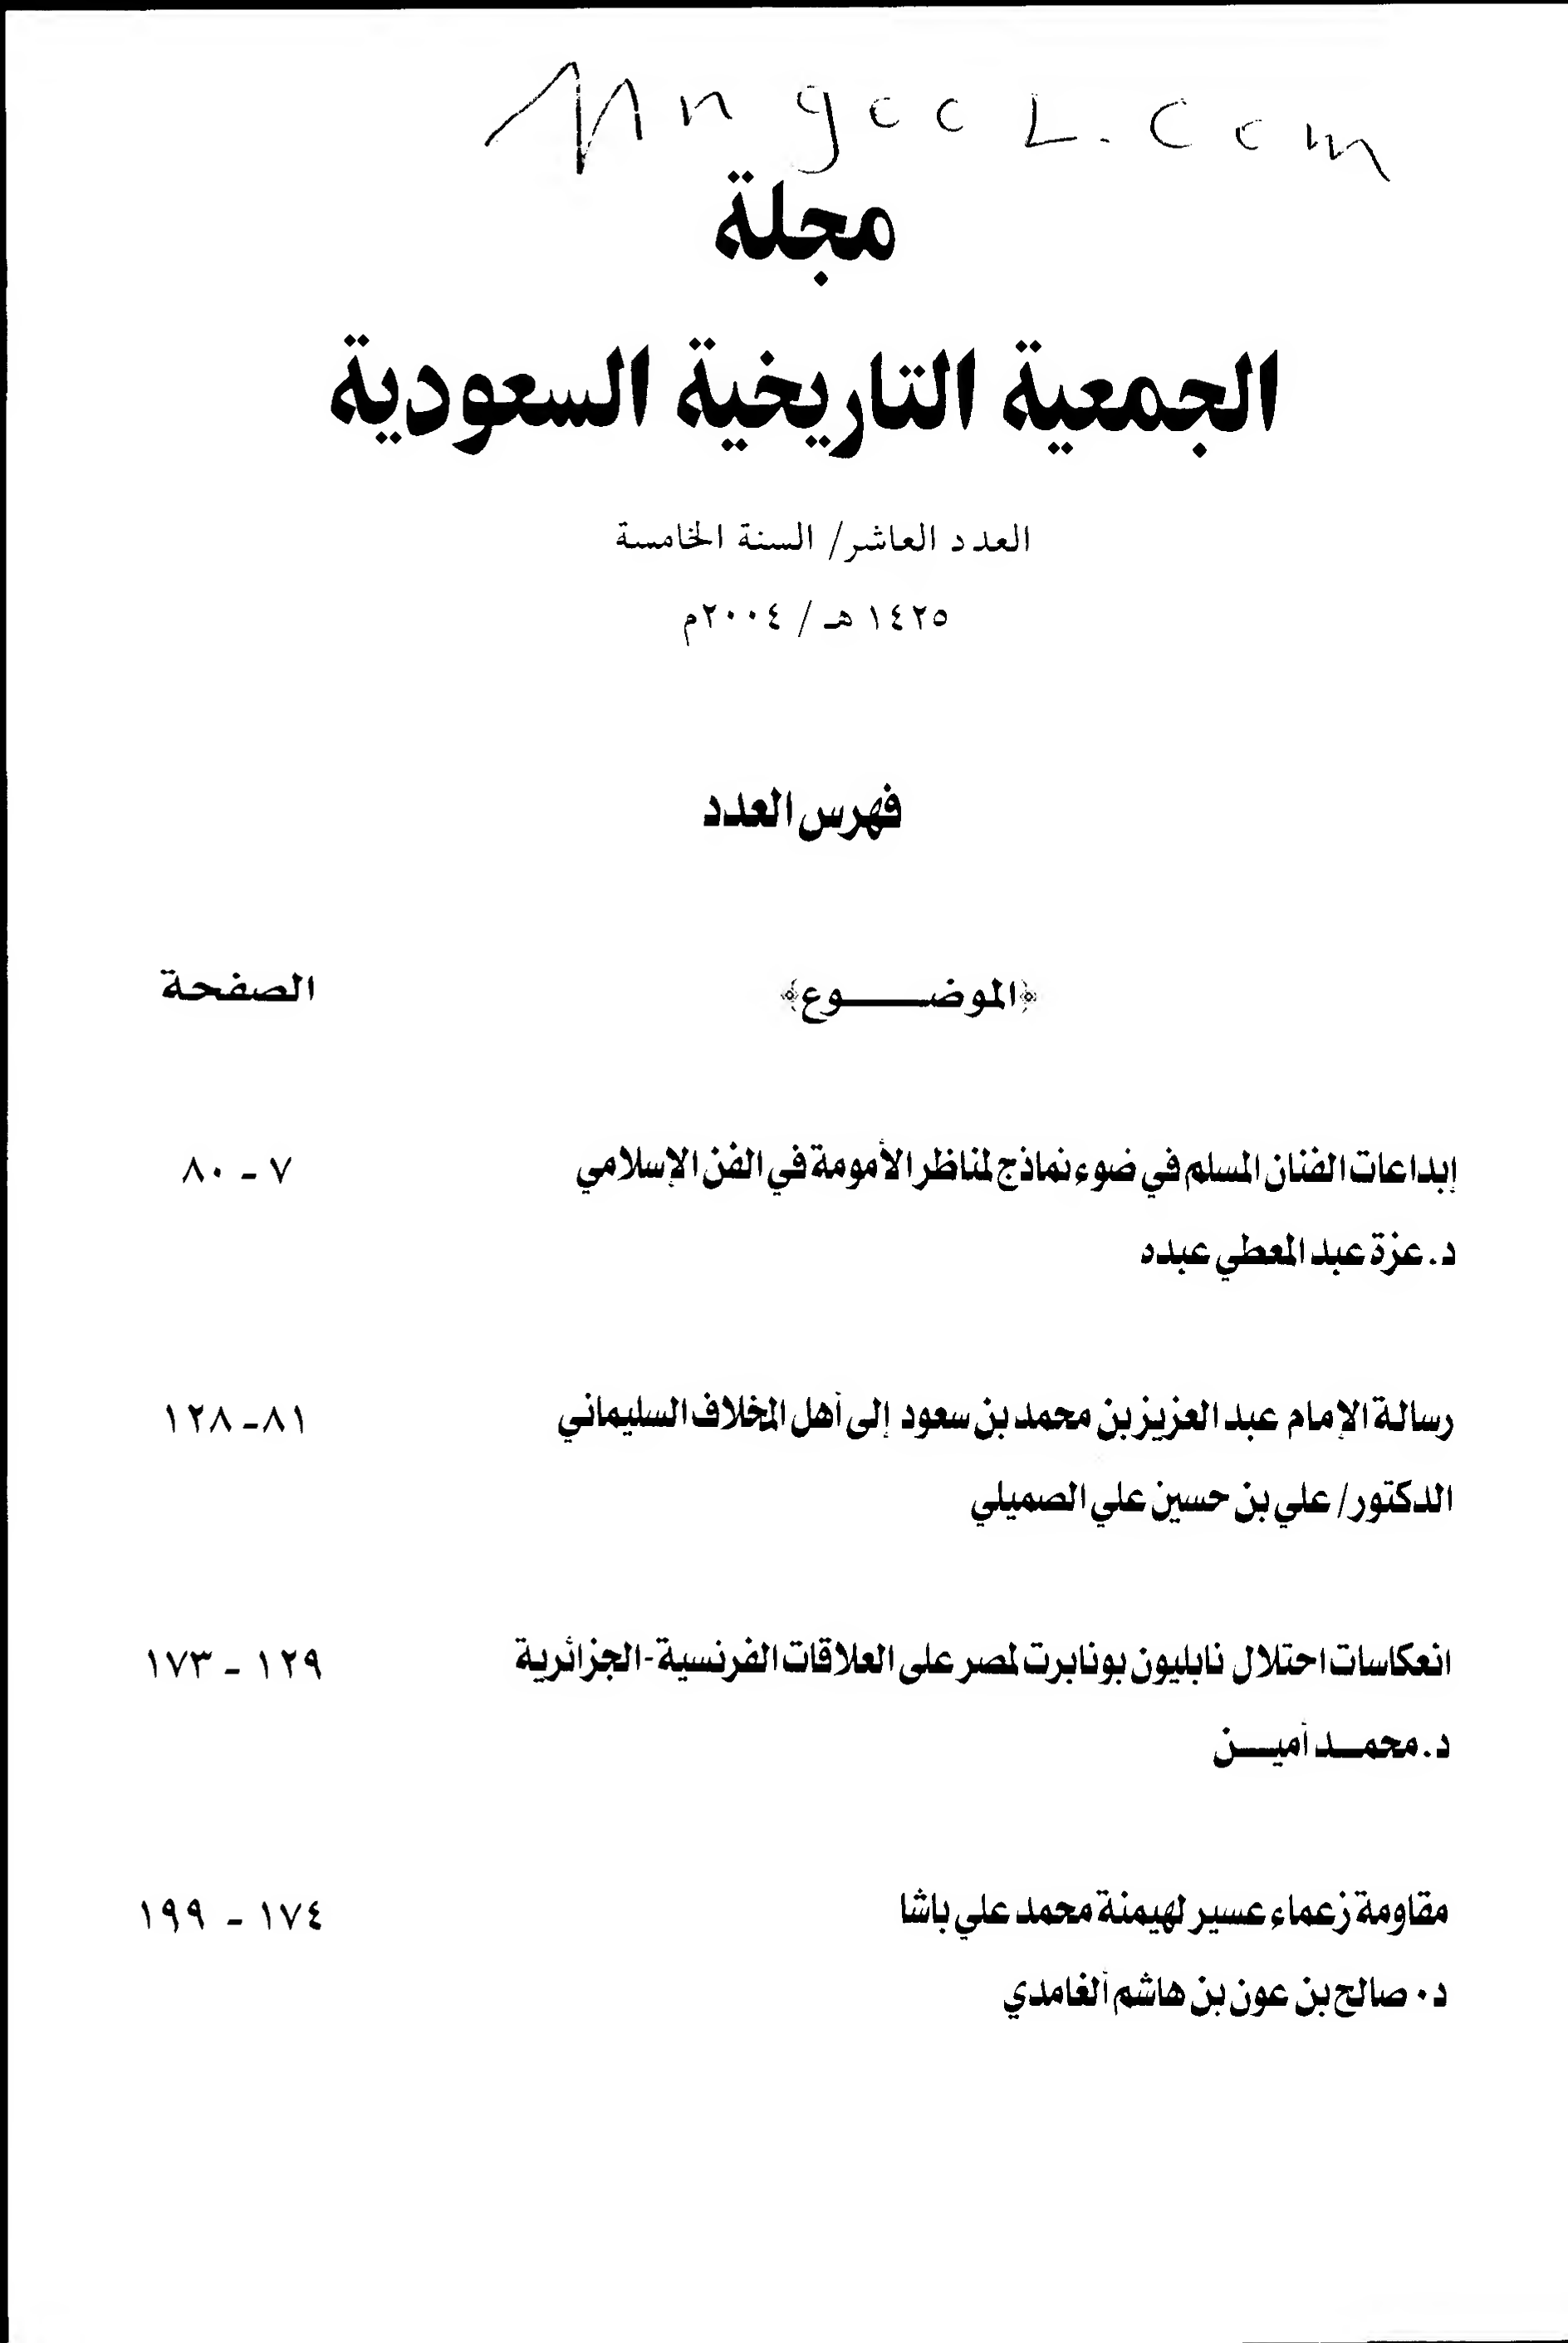 مجلة
الجمعية التاريخية السعودية
العدد العاشر/ السنة الخامسة
١٤٢٥ هـ / ٢٠٠٤م
فهرس العدد
﴿الموضــــــوع﴾ الصفحة
إبداعات الفنان المسلم في ضوء نماذج لمناظر الأمومة في الفن الإسلامي ٧ - ٨٠
د. عزة عبد المعطي عبده
رسالة الإمام عبد العزيز بن محمد بن سعود إلى أهل المخلاف السليماني ٨١-١٢٨
الدكتور/ علي بن حسين علي الصميلي
انعكاسات احتلال نابليون بونابرت لمصر على العلاقات الفرنسية-الجزائرية ١٢٩ - ١٧٣
د. محمــد أميــن
مقاومة زعماء عسير لهيمنة محمد علي باشا ١٧٤ - ١٩٩
د٠ صالح بن عون بن هاشم ألغامدي